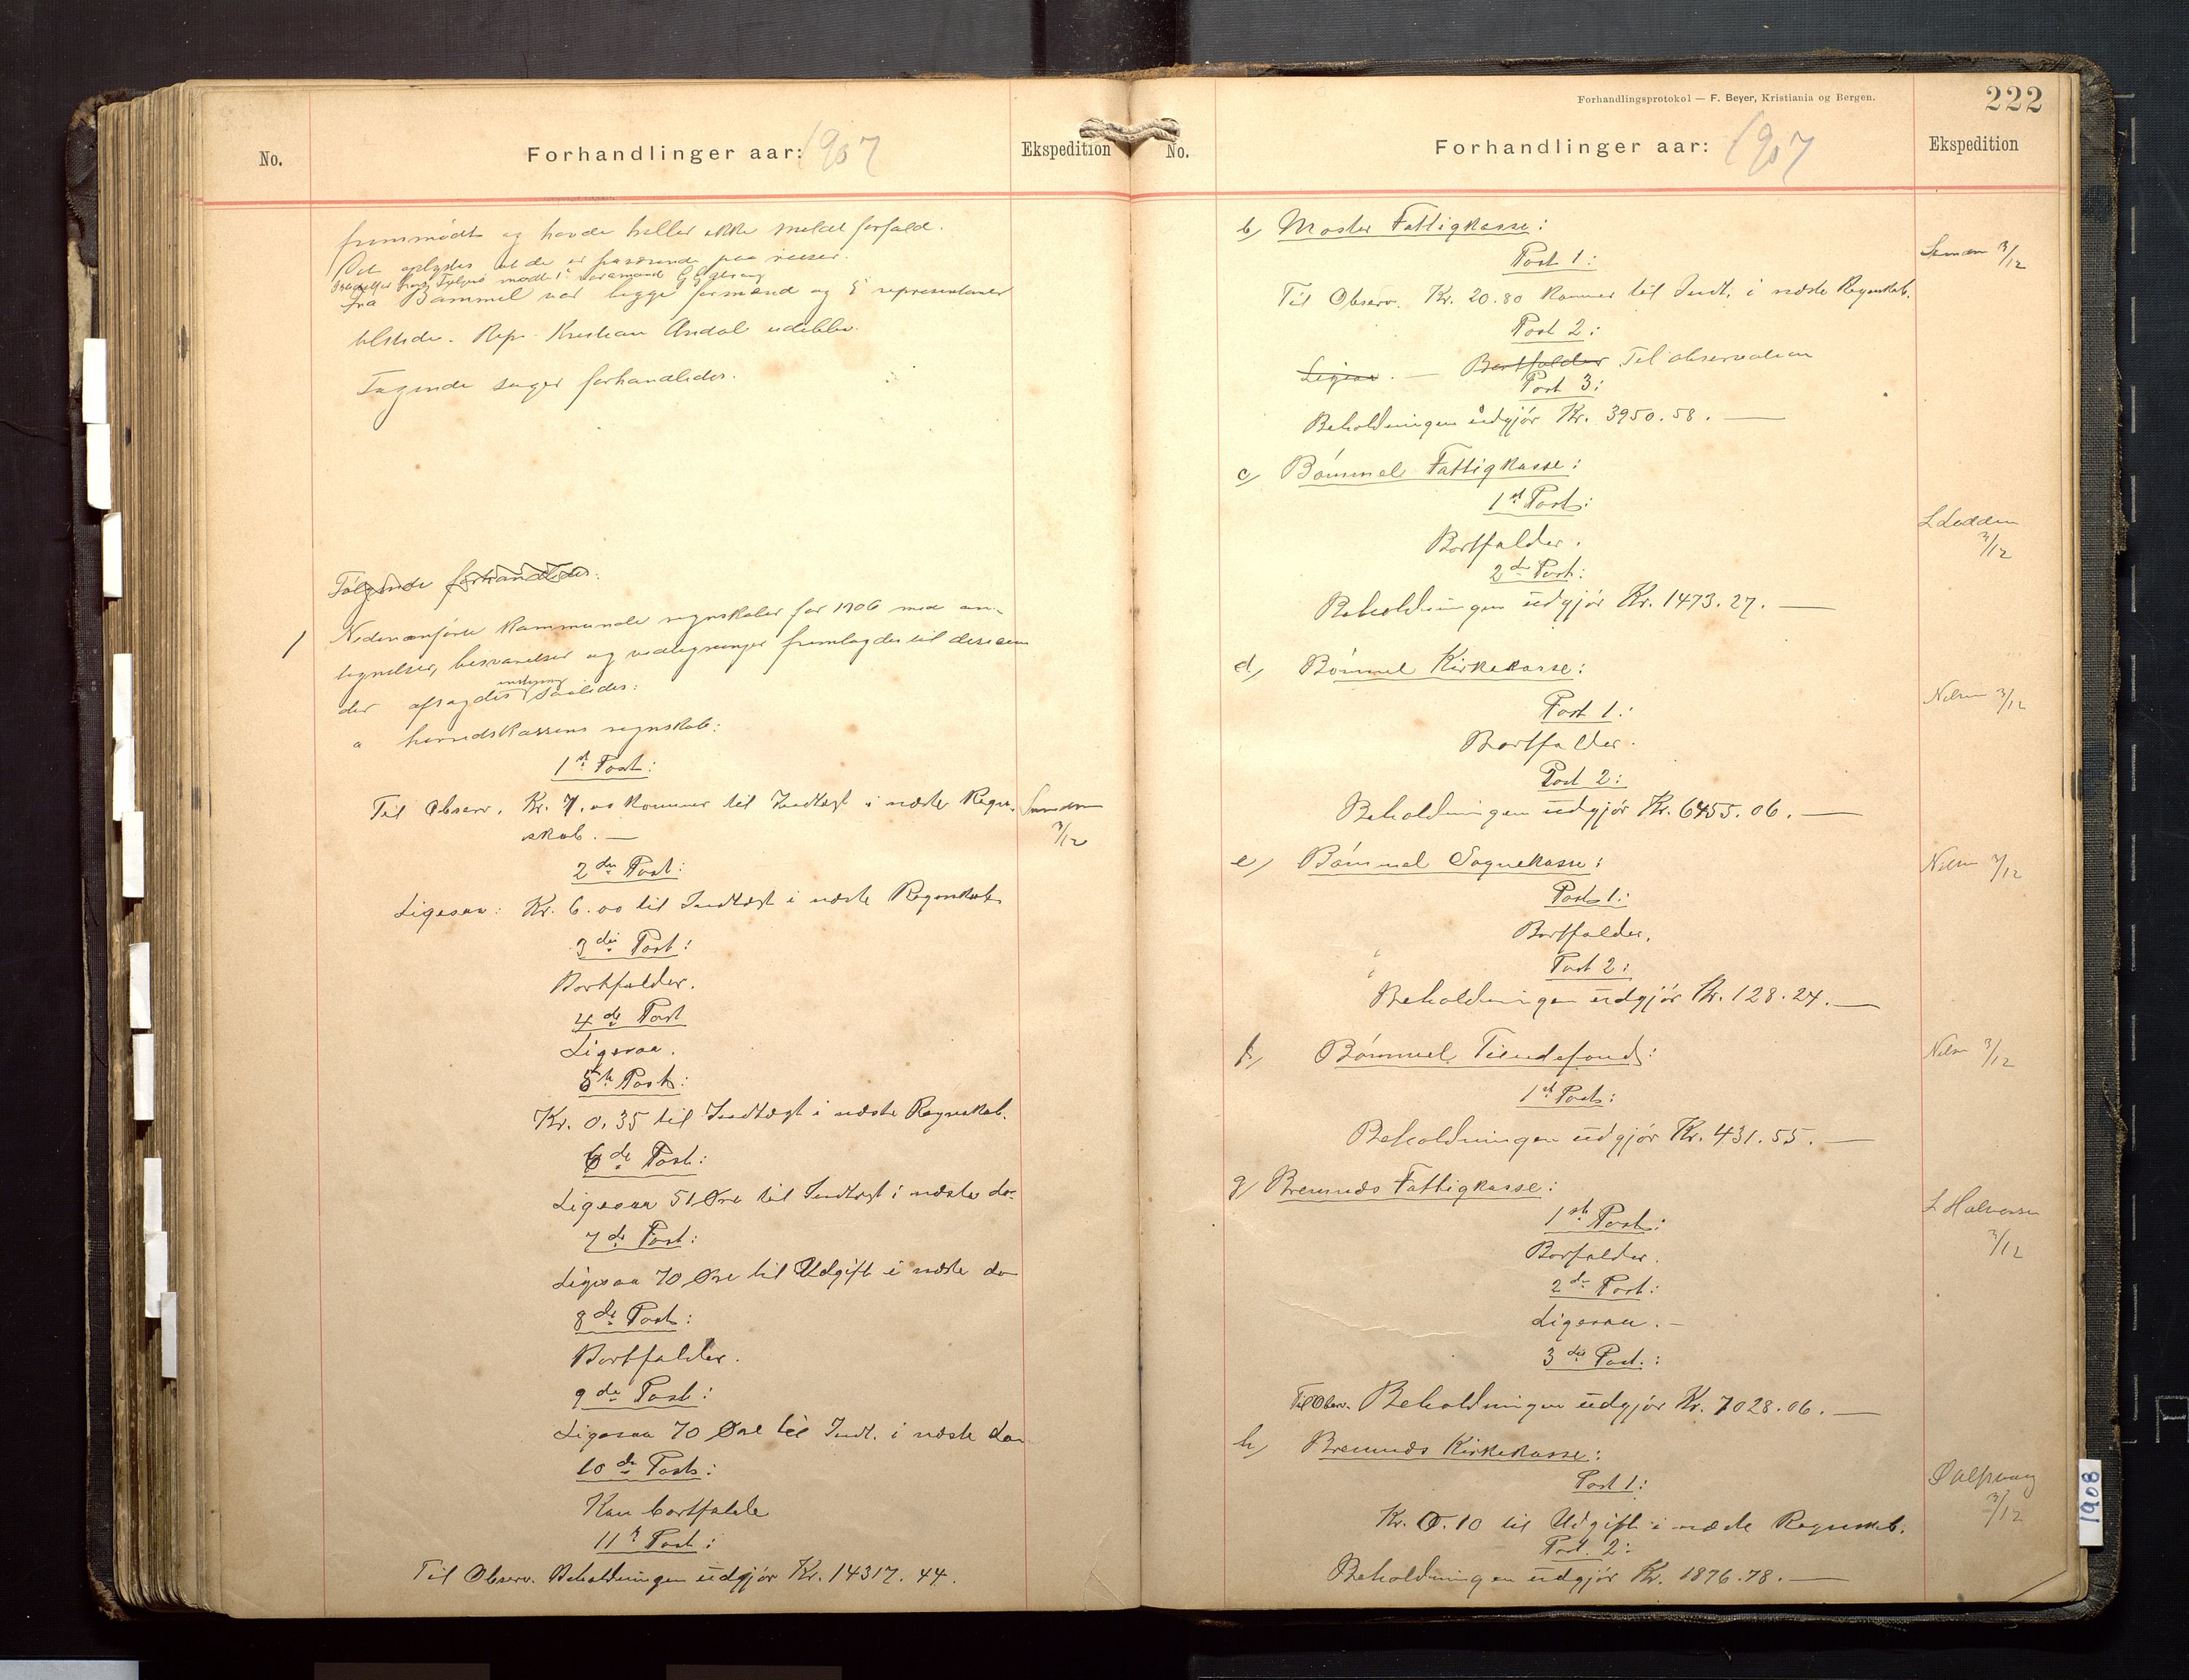 No.
Forhandlinger aar: 1907
Ekspedition
fremmødt og havde heller ikke meldt forfald.
Det oplystes at de er fraværende paa reiser.
mødte 1ste varamand
fra Bømmel var begge formænd og 5 repræsentanter
tilstede. Rep. Kristian Andal udeblev.
Følgende sager forhandledes.
Følgende forhandledes:
1 Nedenanførte kommunale regnskaber for 1906 med an-
tegnelser, besvarelser og vedtegninger fremlagdes til decision
der afsagdes saaledes:
a herredskassens regnskab:
1ste Post:
Til Observ. Kr. 7.00 kommer til Indtægt i næste Regn-
skab. —
3/12
2den Post:
Ligesaa: Kr. 6.00 til Indtægt i næste Regnskab
3die Post:
Bortfalder.
4de Post
Ligesaa.
5te Post:
Kr. 0.35 til Indtægt i næste Regnskab.
6de Post:
Ligesaa 51 Øre til Indtægt i næste do.
7de Post:
Ligesaa 70 Øre til Udgift i næste do
8de Post:
Bortfalder.
9de Post:
Ligesaa 70 Øre til Indt. i næste do
10de Post:
Kan bortfalde
11te Post:
Til Observ. Beholdningen udgjør Kr. 14317.44.
Forhandlingsprotokol — F. Beyer, Kristiania og Bergen.
222
No.
Forhandlinger aar: 1907
Ekspedition
b, Moster Fattigkasse:
Post 1:
3/12
Til Observ. Kr. 20.80 kommer til Indt. i næste Regnskab.
Post 2:
Ligesaa. — Bortfalder Til observation
Post 3:
Beholdningen udgjør Kr. 3950.58. —
c, Bømmel Fattigkasse:
1st Post:
L Lodden
3/12
Bortfalder.
2den Post:
Beholdningen udgjør Kr. 1473.27. —
d, Bømmel Kirkekasse:
Nilsen 3/12
Post 1:
Bortfalder.
Post 2:
Beholdningen udgjør Kr. 6455.06. —
e, Bømmel Sognekasse:
Nilsen 3/12
Post 1:
Bortfalder.
Post 2:
Beholdningen udgjør Kr. 128.24. —
f, Bømmel Tiendefond:
Nilsen 3/12
1st Post:
Beholdningen udgjør Kr. 431.55. —
g, Bremnes Fattigkasse:
L Halvorsen
3/12
1ste Post:
Borfalder.
2den Post:
Ligesaa. —
3die Post.:
Til Observ. Beholdningen udgjør Kr. 7028.06. —
h, Bremnes Kirkekasse:
3/12
Post 1:
Kr. 0.10 til Udgift i næste Regnskab.
Post. 2:
Beholdningen udgjør Kr. 1876.78. —
1908